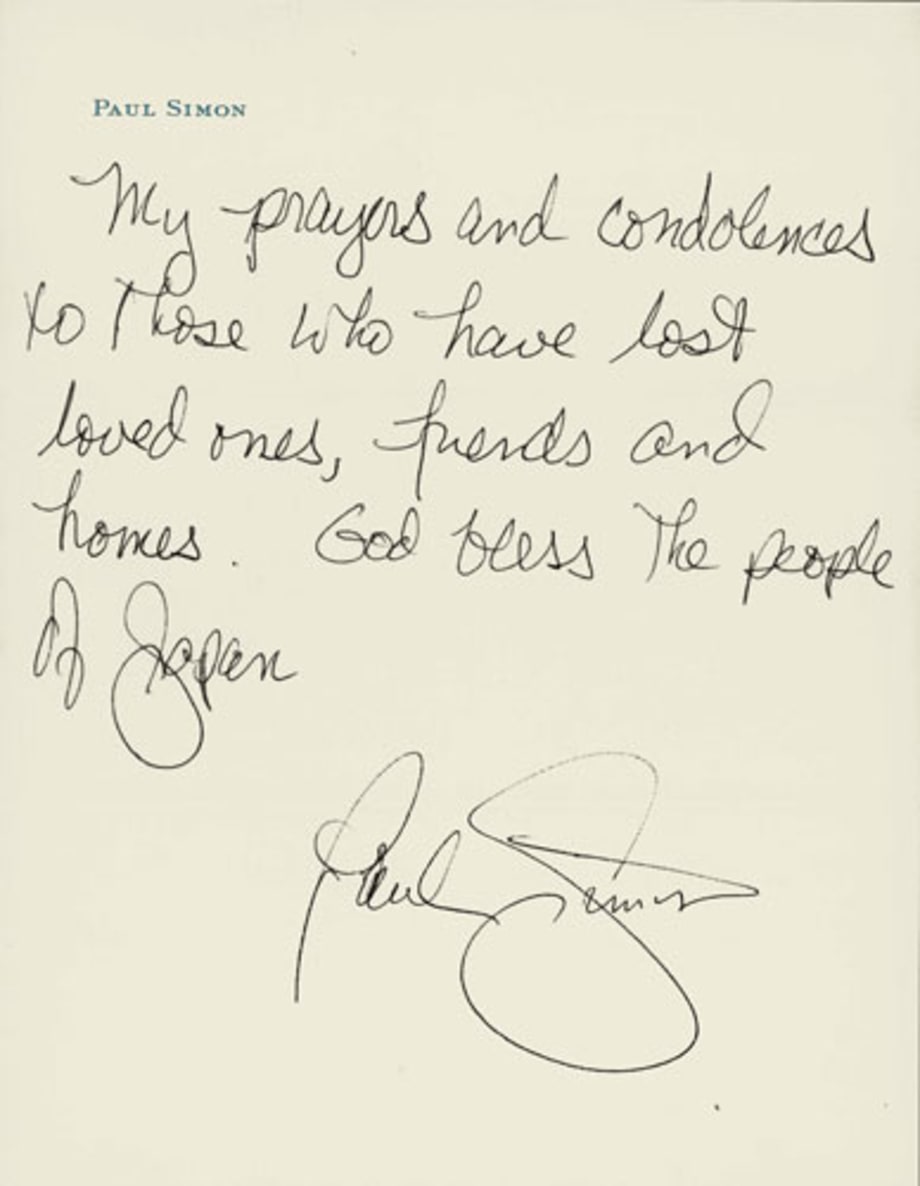 PAUL SIMON
My prayers and condolences
to those who have lost
loved ones, friends and
homes. God bless the people
of Japan
Paul Simon